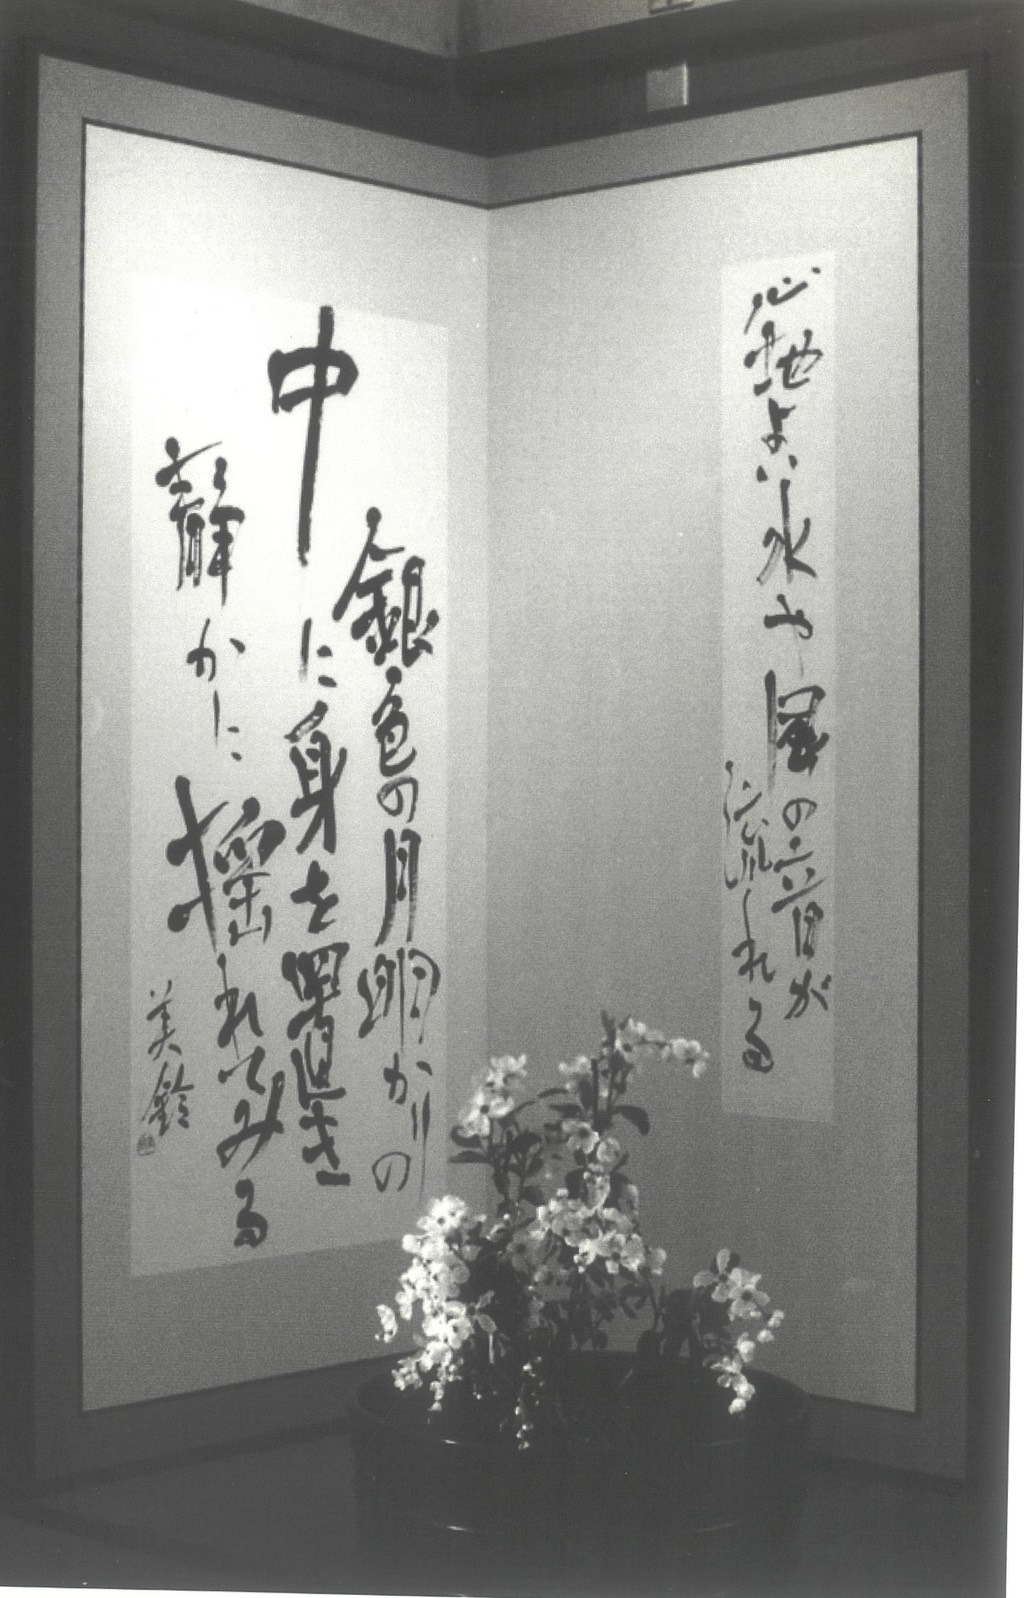 心地よい水や風の音が
流れる
銀色の月明かりの
中に身を置き
静かに揺れてみる
美鈴